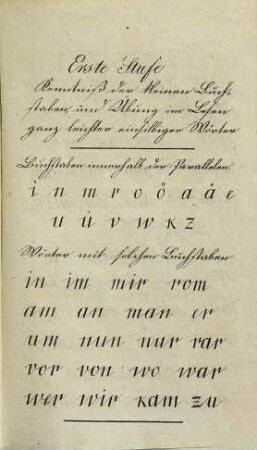 Erste Stufe
Kenntniß der kleinen Buch-
staben und Übung im Lesen
ganz leichter einsilbiger Wörter
Buchstaben innerhalb der Parallelen.
i n m r o ö a ä e
u ü v w k z
Wörter mit solchen Buchstaben
in im mir rom
am an man er
um nun nur rar
vor von wo war
wer wir kam zu